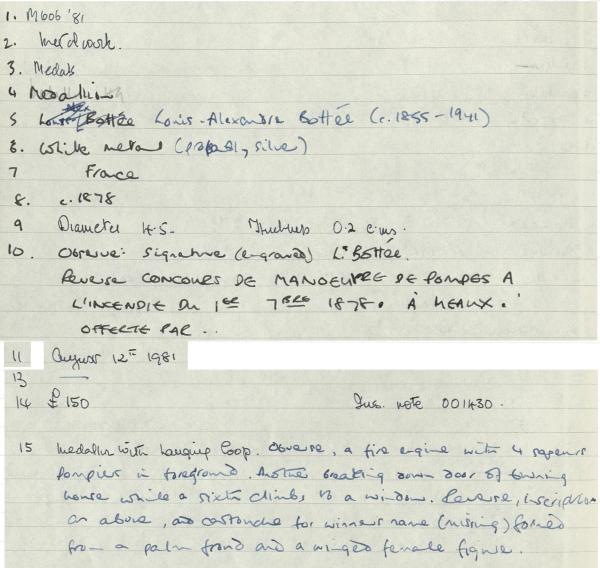 1. M606 '81
2. Metalwork.
3. Medals
4 Medallion
5 Bottée Louis-Alexandre Bottée (c.1855-1941)
6. White metal (probably silver)
7 France
8. c.1878
9 Diameter 4.5. Thickness 0.2 cms.
10. Obverse: signature (engraved) Ls Bottée.
Reverse CONCOURS DE MANOEUVRE DE POMPES A
L'INCENDIE DU 1ER 7BRE 1878. À MEAUX.
OFFERTE PAR ..
11 August 12th 1981
13
14 £150 Ins. note 001430.
15 Medallion with hanging loop. Obverse, a fire engine with 4 sapeurs
pompiers in foreground. Another breaking down door of burning
house while a sixth climbs to a window. Reverse, inscription
as above, and cartouche for winners name (missing) formed
from a palm frond and a winged female figure.